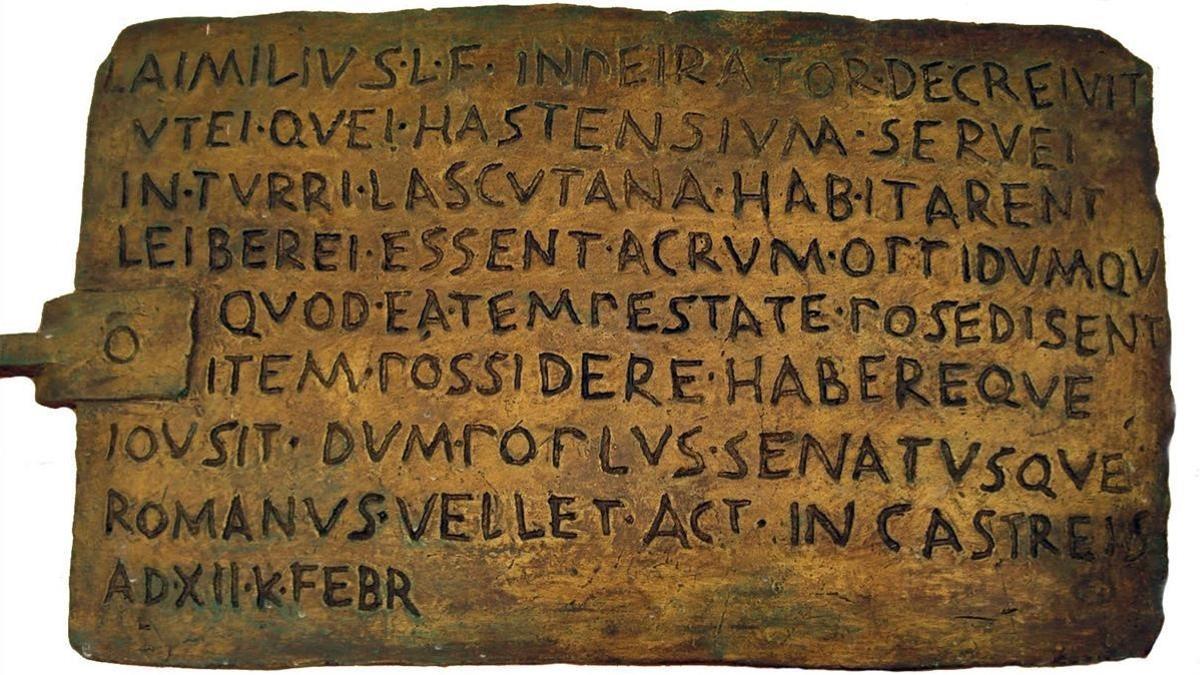 L AIMILIVS·L·F·INPEIRATOR·DECREIVIT
VTEI·QVEI·HASTENSIVM·SERVEI
IN·TVRRI·LASCVTANA·HABITARENT
LEIBEREI·ESSENT·ACRVM·OPPIDVMQV
QVOD·EA·TEMPESTATE·POSEDISENT
ITEM·POSSIDERE·HABEREQVE
IOVSIT·DVM·POPLVS·SENATVSQVE
ROMANVS·VELLET·ACT·IN CASTREIS
AD·XII·K·FEBR